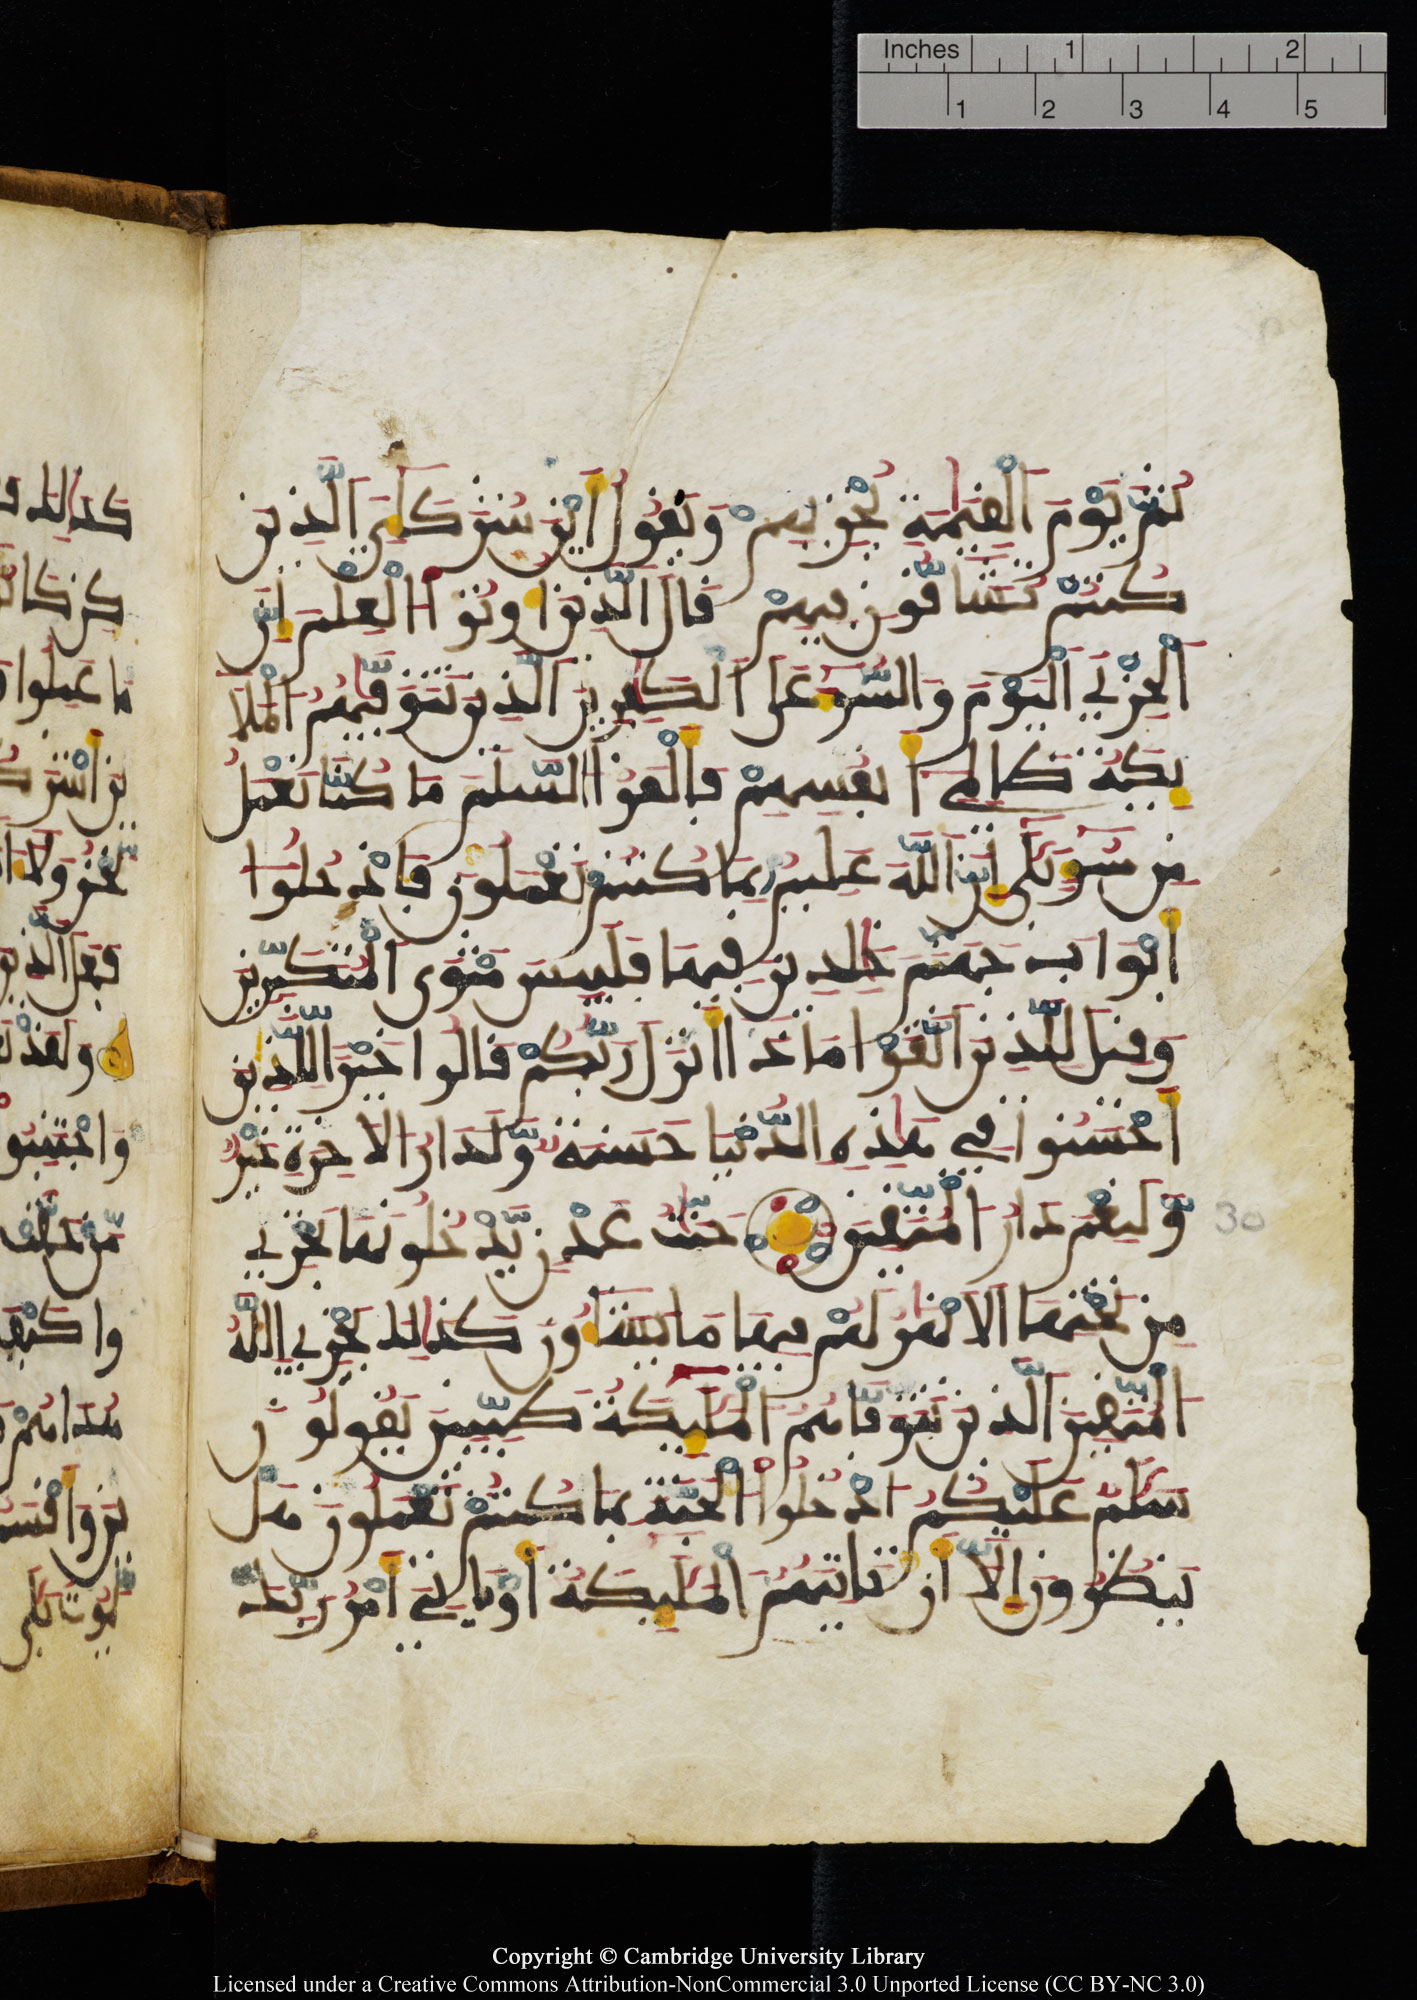 Inches 1 2
1 2 3 4 5
ثم يوم القيمة يخزيهم ويقول أين شركاءي الذين
كنتم تشاقون فيهم قال الذين أوتوا العلم إن
الخزي اليوم والسوء على الكفرين الذين تتوفيهم الملا
يكة ظالمي أنفسهم فألقوا السلم ما كنا نعمل
من سوء بلى إن الله عليم بما كنتم تعملون فادخلوا
أبواب جهنم خلدين فيها فلبيس مثوى المتكبرين
وقيل للذين اتقوا ماذا أنزل ربكم قالوا خيرا للذين
أحسنوا في هذه الدنيا حسنة ولدار الاخرة خير
ولنعم دار المتقين جنت عدن يدخلونها تجري
30
من تحتها الانهر لهم فيها ما يشاءون كذلك يجزي الله
المتقين الذين تتوفاهم المليكة طيبين يقولون
سلم عليكم ادخلوا الجنة بما كنتم تعملون هل
ينظرون إلا أن تاتيهم المليكة أو ياتي أمر ربك
Copyright © Cambridge University Library
Licensed under a Creative Commons Attribution-NonCommercial 3.0 Unported License (CC BY-NC 3.0)